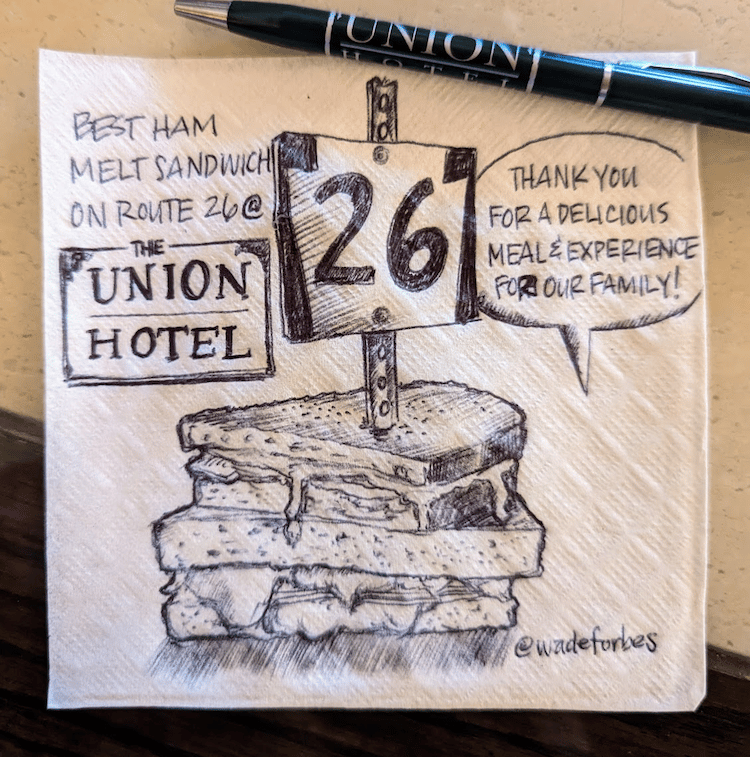 UNION
HOTEL
BEST HAM
MELT SANDWICH
ON ROUTE 26 @
THE
UNION
HOTEL
26
THANK YOU
FOR A DELICIOUS
MEAL & EXPERIENCE
FOR OUR FAMILY!
@wadeforbes